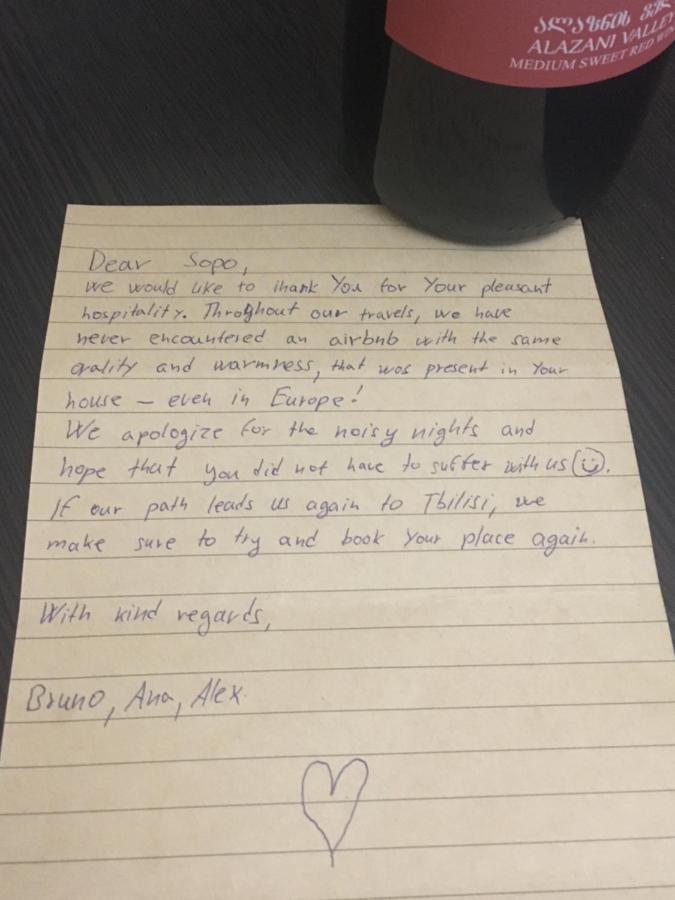 ალაზნის ველ
ALAZANI VALLEY
MEDIUM SWEET RED WIN
Dear Sopo,
we would like to thank You for Your pleasant
hospitality. Throghout our travels, we have
never encountered an airbnb with the same
qality and warmness, that was present in Your
house – even in Europe!
We apologize for the noisy nights and
hope that you did not have to suffer with us ☺.
If our path leads us again to Tbilisi, we
make sure to try and book Your place again.
With kind regards,
Bruno, Ana, Alex